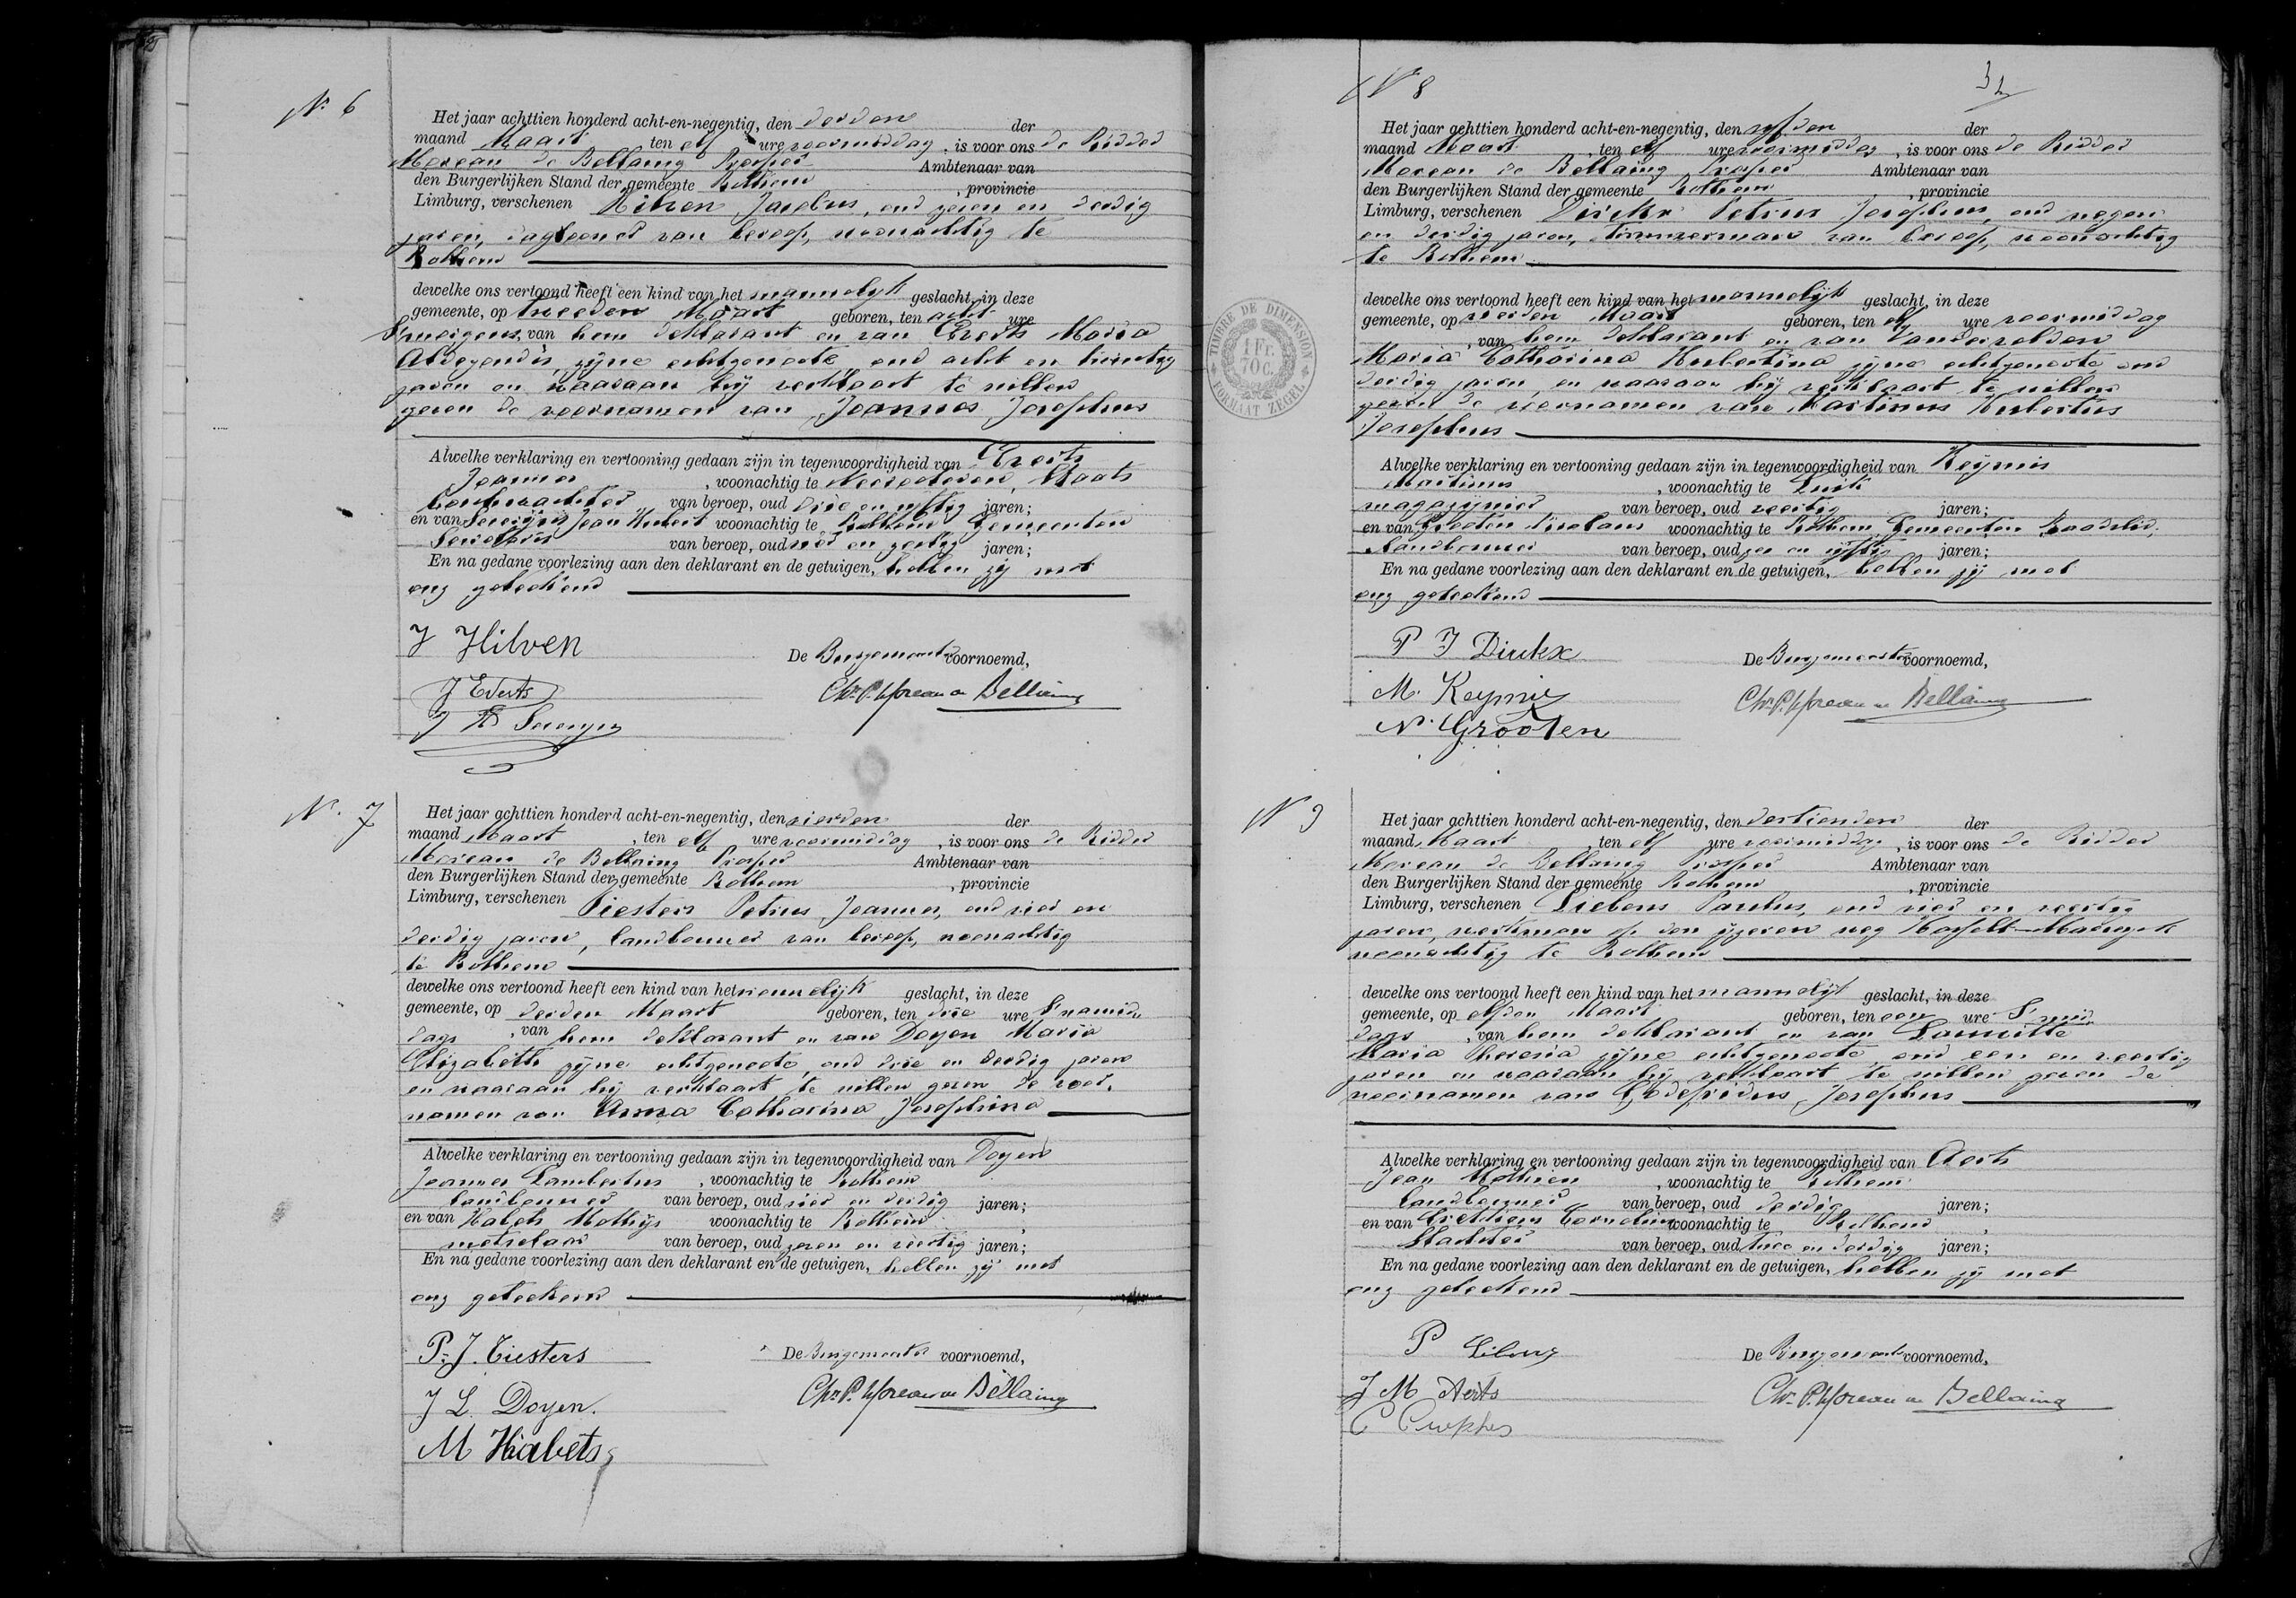 N° 6
Het jaar achttien honderd acht-en-negentig, den derden der
maand Maart ten elf ure voormiddag, is voor ons de Ridder
Moreau de Bellaing Prosper Ambtenaar van
den Burgerlijken Stand der gemeente Rothem, provincie
Limburg, verschenen Hilven Jacobus, oud zeven en dertig
jaren, dagloner van beroep, woonachtig te
Rothem
dewelke ons vertoond heeft een kind van het mannelijk geslacht, in deze
gemeente, op tweeden Maart geboren, ten acht ure
S'morgens, van hem deklarant en van Everts Maria
Aldegondis, zijne echtgenoote oud acht en twintig
jaren en waaraan hij verklaart te willen
geven de voornamen van Joannes Josephus
Alwelke verklaring en vertooning gedaan zijn in tegenwoordigheid van Everts
Joannes, woonachtig te Neeroeteren, Staats
boschwachter van beroep, oud drie en vijftig jaren;
en van Severijns Jean Hubert woonachtig te Rothem Gemeenten
Secretaris van beroep, oud vier en zestig jaren;
En na gedane voorlezing aan den deklarant en de getuigen, hebben zij met
ons geteekend
J Hilven
De Burgemeester voornoemd,
J Everts
Chr. P. Moreau de Bellaing
J H Severyns
N. 7
Het jaar achttien honderd acht-en-negentig, den vierden der
maand Maart, ten elf ure voormiddag, is voor ons de Ridder
Moreau de Bellaing Prosper Ambtenaar van
den Burgerlijken Stand der gemeente Rothem, provincie
Limburg, verschenen Tiesters Petrus Joannes, oud vier en
dertig jaren, landbouwer van beroep, woonachtig
te Rothem
dewelke ons vertoond heeft een kind van het vrouwelijk geslacht, in deze
gemeente, op derden Maart geboren, ten drie ure S'namid
dags, van hem deklarant en van Doyen Maria
Elizabeth zijne echtgenoote, oud drie en dertig jaren
en waaraan hij verklaart te willen geven de voor-
namen van Anna Catharina Josephina
Alwelke verklaring en vertooning gedaan zijn in tegenwoordigheid van Doyen
Joannes Lambertus, woonachtig te Rothem
landbouwer van beroep, oud vier en dertig jaren;
en van Habets Mathijs woonachtig te Rothem,
metselaar van beroep, oud zeven en veertig jaren;
En na gedane voorlezing aan den deklarant en de getuigen, hebben zij met
ons geteekend
P. J. Tiesters
De Burgemeester voornoemd,
J L. Doyen.
Chr. P. Moreau de Bellaing
M Habets
N° 8
Het jaar achttien honderd acht-en-negentig, den vijfden der
maand Maart, ten elf ure voormiddag, is voor ons de Ridder
Moreau de Bellaing Prosper Ambtenaar van
den Burgerlijken Stand der gemeente Rothem, provincie
Limburg, verschenen Dirckx Petrus Josephus, oud negen
en dertig jaren, timmerman van beroep, woonachtig
te Rothem
dewelke ons vertoond heeft een kind van het mannelijk geslacht, in deze
gemeente, op vierden Maart geboren, ten elf ure voormiddag
, van hem deklarant en van Vandervelden
Maria Catharina Hubertina zijne echtgenoote oud
dertig jaren, en waaraan hij verklaart te willen
geven de voornamen van Martinus Hubertus
Josephus
Alwelke verklaring en vertooning gedaan zijn in tegenwoordigheid van Keymis
Martinus, woonachtig te Luik
magazijnier van beroep, oud veertig jaren;
en van Grooten Nicolaus woonachtig te Rothem Gemeenten Raadslid,
Landbouwer van beroep, oud zes en vijftig jaren;
En na gedane voorlezing aan den deklarant en de getuigen, hebben zij met
ons geteekend
P J Dirckx
De Burgemeester voornoemd,
M. Keymis
Chr. P. Moreau de Bellaing
N. Grooten
TIMBRE DE DIMENSION
1 Fr.
70 c.
FORMAAT ZEGEL
N 9
Het jaar achttien honderd acht-en-negentig, den dertienden der
maand Maart, ten elf ure voormiddag, is voor ons de Ridder
Moreau de Bellaing Prosper Ambtenaar van
den Burgerlijken Stand der gemeente Rothem, provincie
Limburg, verschenen Liebens Paulus, oud vier en veertig
jaren, werkman op den ijzeren weg Hasselt-Maeseyck
woonachtig te Rothem
dewelke ons vertoond heeft een kind van het mannelijk geslacht, in deze
gemeente, op elfden Maart geboren, ten een ure S'mid
dags, van hem deklarant en van
Maria Theresia zijne echtgenoote, oud een en veertig
jaren en waaraan hij verklaart te willen geven de
voornamen van Godefridus Josephus
Alwelke verklaring en vertooning gedaan zijn in tegenwoordigheid van Aerts
Jean Mathieu, woonachtig te Rothem
landbouwer van beroep, oud dertig jaren;
en van Cornelius woonachtig te Rothem,
Slachter van beroep, oud twee en dertig jaren;
En na gedane voorlezing aan den deklarant en de getuigen, hebben zij met
ons geteekend
P
De Burgemeester voornoemd,
J M Aerts
Chr. P. Moreau de Bellaing
C